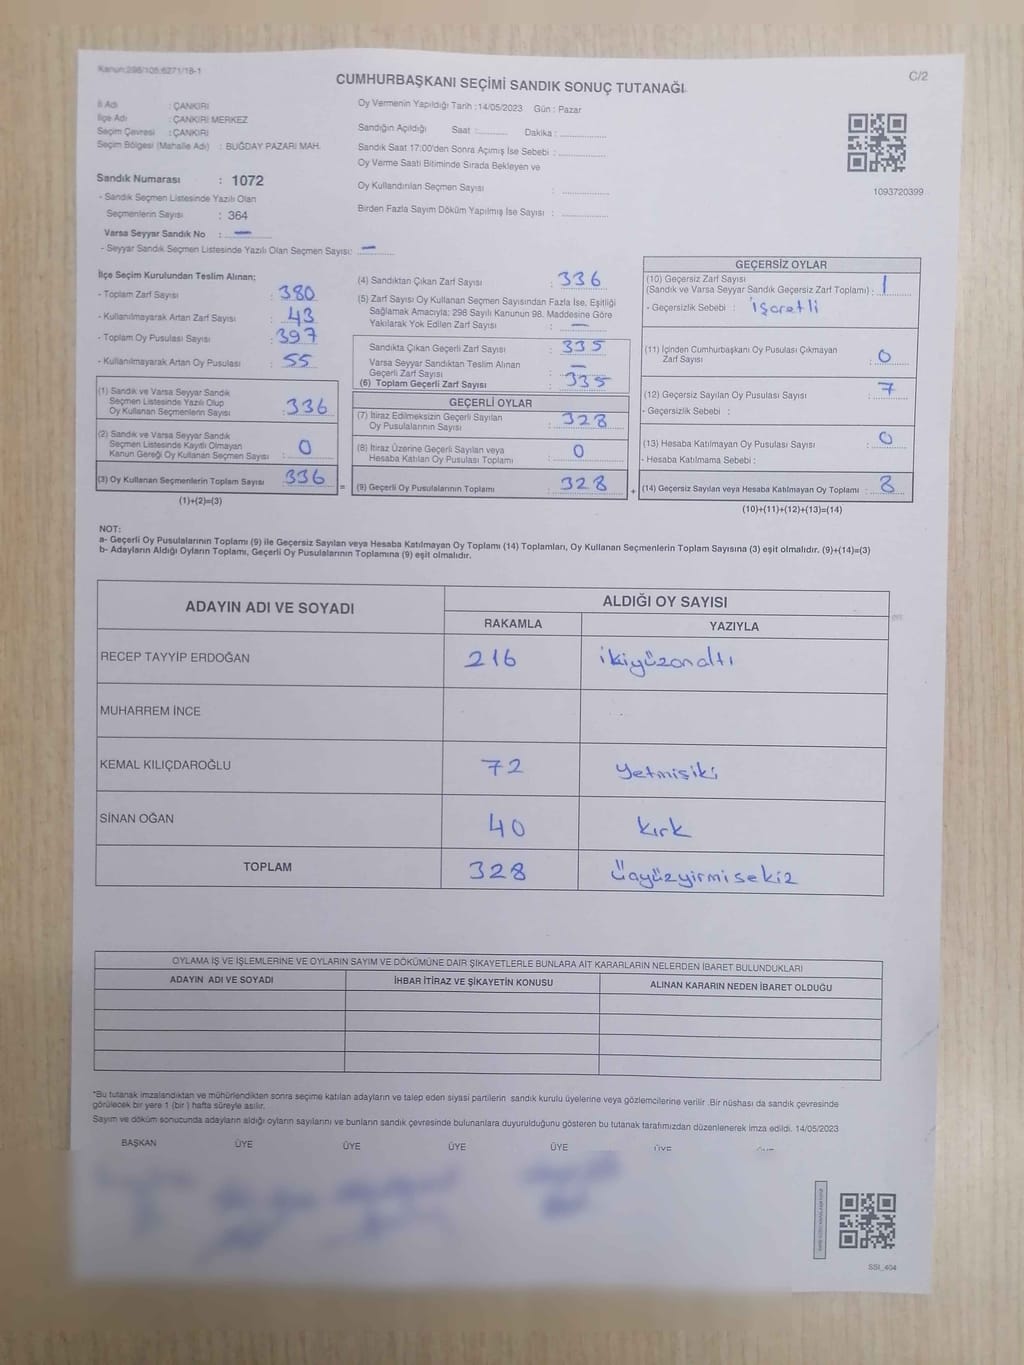 Kanun:298/105;6271/18-1
C/2
CUMHURBAŞKANI SEÇİMİ SANDIK SONUÇ TUTANAĞI
İl Adı : ÇANKIRI
İlçe Adı : ÇANKIRI MERKEZ
Seçim Çevresi : ÇANKIRI
Seçim Bölgesi (Mahalle Adı) : BUĞDAY PAZARI MAH.
Sandık Numarası : 1072
- Sandık Seçmen Listesinde Yazılı Olan
Seçmenlerin Sayısı : 364
Varsa Seyyar Sandık No : —
- Seyyar Sandık Seçmen Listesinde Yazılı Olan Seçmen Sayısı: —
Oy Vermenin Yapıldığı Tarih :14/05/2023 Gün : Pazar
Sandığın Açıldığı Saat :.......... Dakika :..............
Sandık Saat 17:00'den Sonra Açımış İse Sebebi :..............
Oy Verme Saati Bitiminde Sırada Bekleyen ve
Oy Kullandırılan Seçmen Sayısı : ..............
Birden Fazla Sayım Döküm Yapılmış İse Sayısı : ..............
1093720399
İlçe Seçim Kurulundan Teslim Alınan;
- Toplam Zarf Sayısı : 380
- Kullanılmayarak Artan Zarf Sayısı : 43
- Toplam Oy Pusulası Sayısı : 397
- Kullanılmayarak Artan Oy Pusulası : 55
(1) Sandık ve Varsa Seyyar Sandık
Seçmen Listesinde Yazılı Olup
Oy Kullanan Seçmenlerin Sayısı : 336
(2) Sandık ve Varsa Seyyar Sandık
Seçmen Listesinde Kayıtlı Olmayan
Kanun Gereği Oy Kullanan Seçmen Sayısı : 0
(3) Oy Kullanan Seçmenlerin Toplam Sayısı : 336
(1)+(2)=(3)
(4) Sandıktan Çıkan Zarf Sayısı : 336
(5) Zarf Sayısı Oy Kullanan Seçmen Sayısından Fazla İse, Eşitliği
Sağlamak Amacıyla; 298 Sayılı Kanunun 98. Maddesine Göre
Yakılarak Yok Edilen Zarf Sayısı : —
Sandıkta Çıkan Geçerli Zarf Sayısı : 335
Varsa Seyyar Sandıktan Teslim Alınan
Geçerli Zarf Sayısı : —
(6) Toplam Geçerli Zarf Sayısı : 335
GEÇERLİ OYLAR
(7) İtiraz Edilmeksizin Geçerli Sayılan
Oy Pusulalarının Sayısı : 328
(8) İtiraz Üzerine Geçerli Sayılan veya
Hesaba Katılan Oy Pusulası Toplamı : 0
= (9) Geçerli Oy Pusulalarının Toplamı : 328
GEÇERSİZ OYLAR
(10) Geçersiz Zarf Sayısı
(Sandık ve Varsa Seyyar Sandık Geçersiz Zarf Toplamı) : 1
- Geçersizlik Sebebi : işaretli
(11) İçinden Cumhurbaşkanı Oy Pusulası Çıkmayan
Zarf Sayısı : 0
(12) Geçersiz Sayılan Oy Pusulası Sayısı : 7
- Geçersizlik Sebebi :
(13) Hesaba Katılmayan Oy Pusulası Sayısı : 0
- Hesaba Katılmama Sebebi :
+ (14) Geçersiz Sayılan veya Hesaba Katılmayan Oy Toplamı : 8
(10)+(11)+(12)+(13)=(14)
NOT:
a- Geçerli Oy Pusulalarının Toplamı (9) ile Geçersiz Sayılan veya Hesaba Katılmayan Oy Toplamı (14) Toplamları, Oy Kullanan Seçmenlerin Toplam Sayısına (3) eşit olmalıdır. (9)+(14)=(3)
b- Adayların Aldığı Oyların Toplamı, Geçerli Oy Pusulalarının Toplamına (9) eşit olmalıdır.
ADAYIN ADI VE SOYADI ALDIĞI OY SAYISI
RAKAMLA YAZIYLA
RECEP TAYYİP ERDOĞAN 216 ikiyüzonaltı
MUHARREM İNCE
KEMAL KILIÇDAROĞLU 72 Yetmişiki
SİNAN OĞAN 40 kırk
TOPLAM 328 Üçyüzyirmisekiz
OYLAMA İŞ VE İŞLEMLERİNE VE OYLARIN SAYIM VE DÖKÜMÜNE DAİR ŞİKAYETLERLE BUNLARA AİT KARARLARIN NELERDEN İBARET BULUNDUKLARI
ADAYIN ADI VE SOYADI İHBAR İTİRAZ VE ŞİKAYETİN KONUSU ALINAN KARARIN NEDEN İBARET OLDUĞU
*Bu tutanak imzalandıktan ve mühürlendikten sonra seçime katılan adayların ve talep eden siyasi partilerin sandık kurulu üyelerine veya gözlemcilerine verilir .Bir nüshası da sandık çevresinde
görülecek bir yere 1 (bir ) hafta süreyle asılır.
Sayım ve döküm sonucunda adayların aldığı oyların sayılarını ve bunların sandık çevresinde bulunanlara duyurulduğunu gösteren bu tutanak tarafımızdan düzenlenerek imza edildi. 14/05/2023
BAŞKAN ÜYE ÜYE ÜYE ÜYE ÜYE
SSI_404